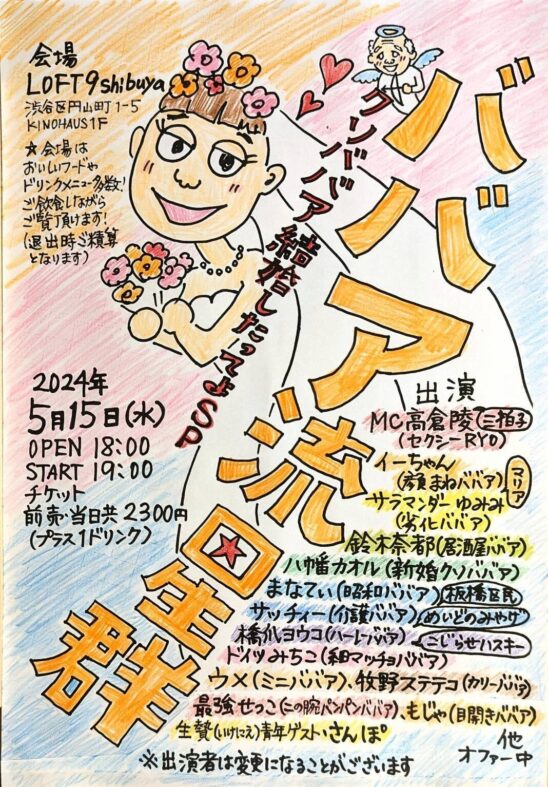 会場
LOFT9shibuya
渋谷区円山町1-5
KINOHAUS1F
☆会場は
おいしいフードや
ドリンクメニュー多数!
ご飲食しながら
ご覧頂けます!
(退出時ご精算
となります)
ババア流星群
クソババア結婚したってよSP
2024年
5月15日(水)
OPEN 18:00
START 19:00
チケット
前売・当日共2300円
(プラス1ドリンク)
出演
MC高倉陵 三拍子
(セクシーRYO)
イーちゃん
(顔まねババア)
サラマンダーゆみみ
(劣化ババア)
マリア
鈴木奈都(居酒屋ババア)
八幡カオル(新婚クソババア)
まなてぃ(昭和ババア) 板橋区民
サッチィー(介護ババア) めいどのみやげ
橋爪ヨウコ(ハーレーババア) こじらせハスキー
ドイツみちこ(細マッチョババア)
ウメ(ミニババア)、牧野ステテコ(カリーババア)
最強せっこ(二の腕パンパンババア)、もじゃ(目開きババア)
生贄(いけにえ)青年ゲスト・さんぽ
他
オファー中
※出演者は変更になることがございます